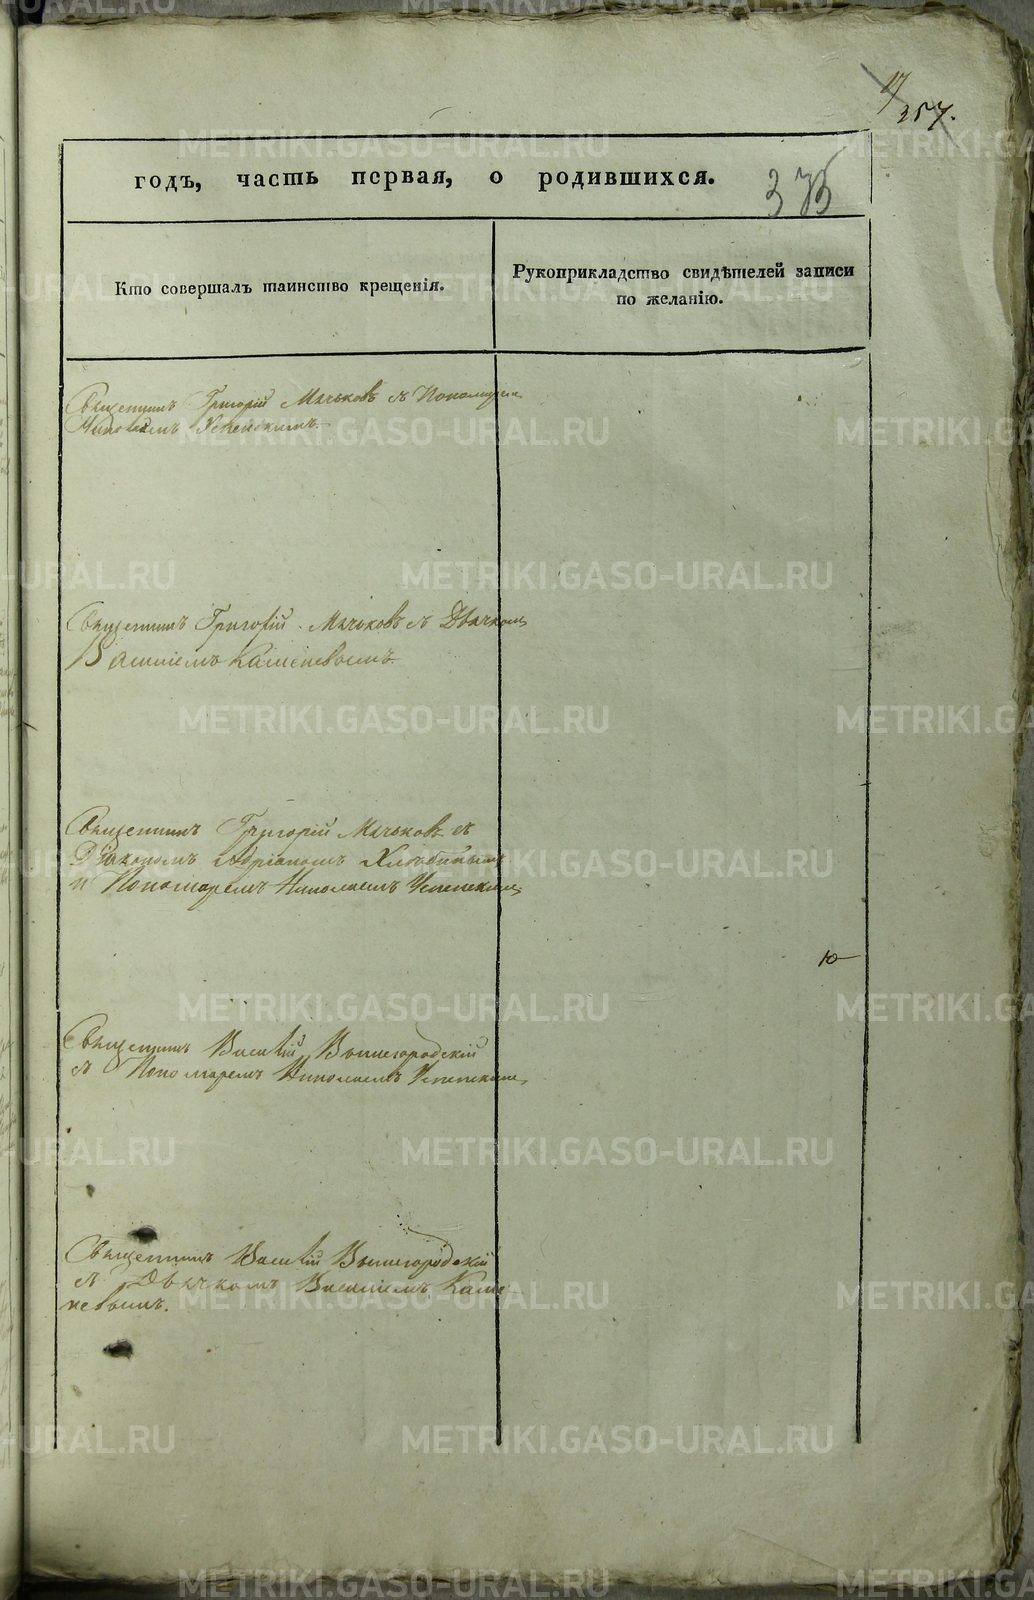 17
357.
годъ, часть первая, о родившихся.
375
Кто совершалъ таинство крещенія.
Рукоприкладство свидѣтелей записи
по желанію.
Священникъ Григорій Мачьковъ съ Пономаремъ
Николаемъ Успенскимъ.
Священникъ Григорій Мачьковъ съ Дьячкомъ
Василіемъ Каменевымъ.
Священникъ Григорій Мачьковъ съ
Діакономъ Адріаномъ Хлѣбинымъ
и Пономаремъ Николаемъ Успенскимъ
Ю
Священникъ Василій Вышегородскій
съ Пономаремъ Николаемъ Успенскимъ
Священникъ Василій Вышегородскій
съ Дьячкомъ Василіемъ Каме
невымъ.
METRIKI.GASO-URAL.RU